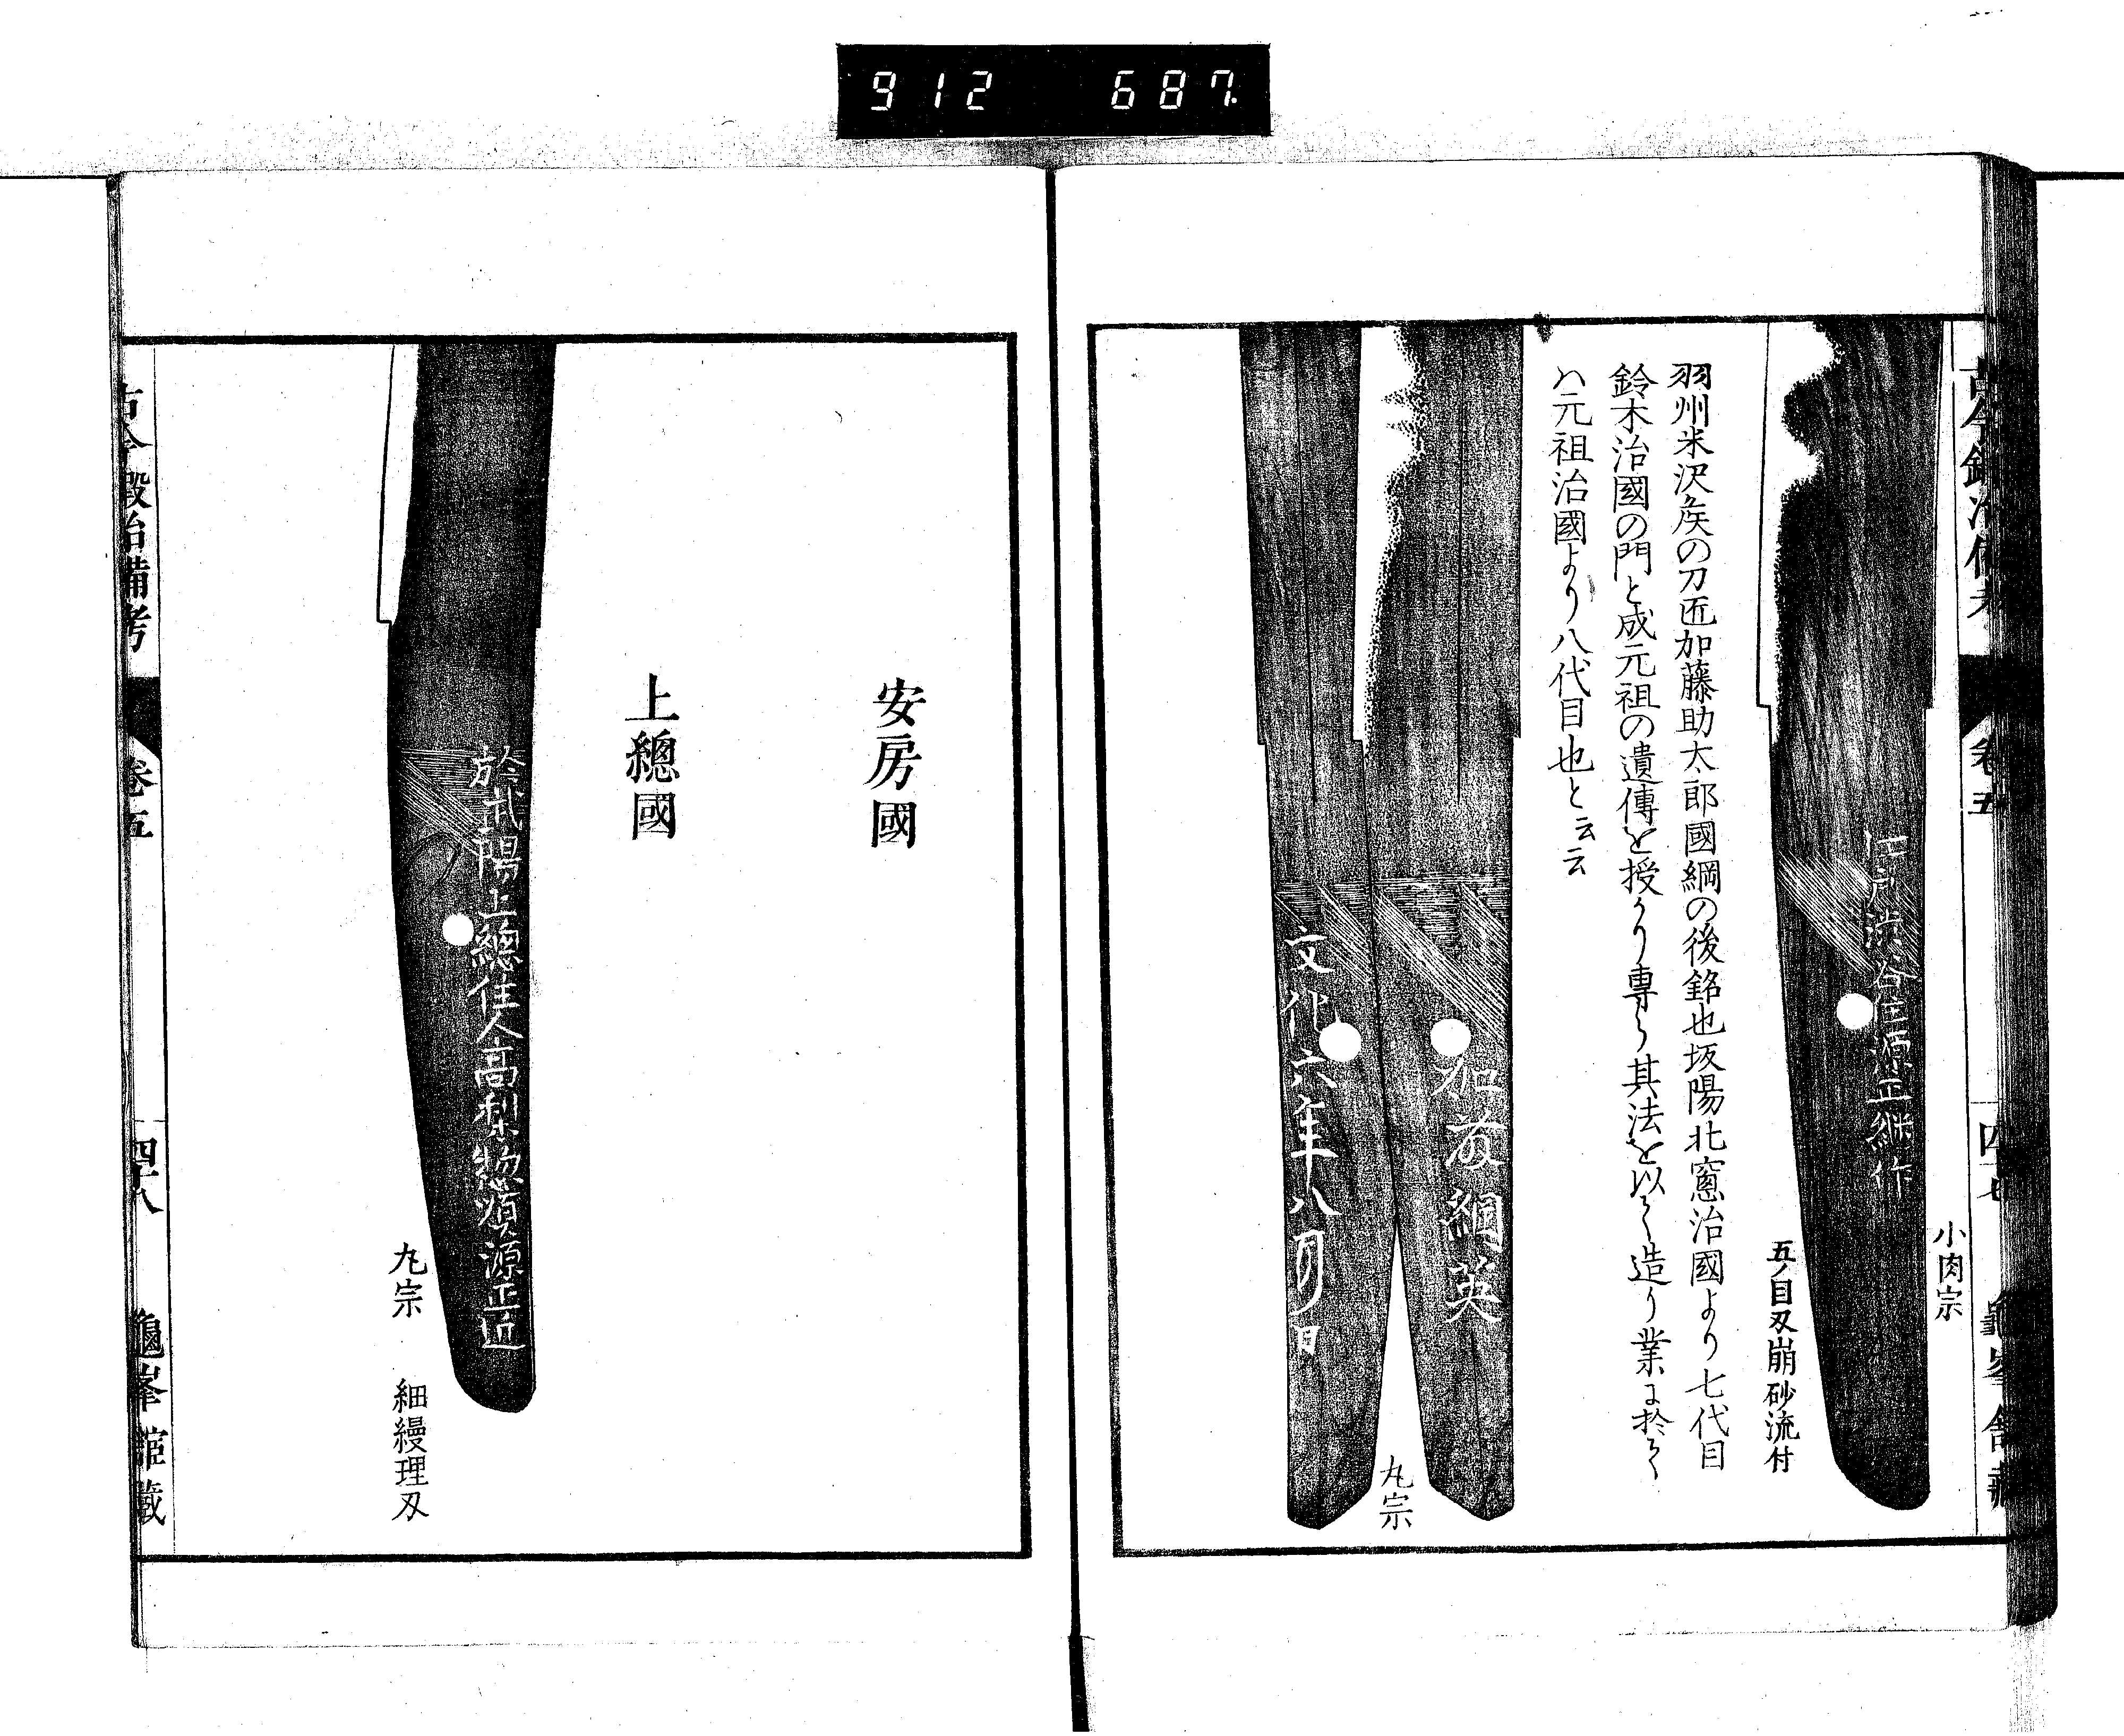 912 687
古今鍛冶備考
卷五
四十七
龜峯館藏
小肉宗
江戸渋谷住源正継作
五ノ目刄崩砂流付
羽州米沢矦の刀匠加藤助太郎國綱の後銘也坂陽北窻治國より七代目
鈴木治國の門と成元祖の遺傳を授かり専ら其法を以て造り業に於て
ハ元祖治國より八代目也と云云
加藤綱英
丸宗
文化六年八月日
安房國
上總國
於武陽上總住人髙梨惣
源正近
丸宗 細縵理刄
古今鍛冶備考
卷五
四十八
龜峯館藏